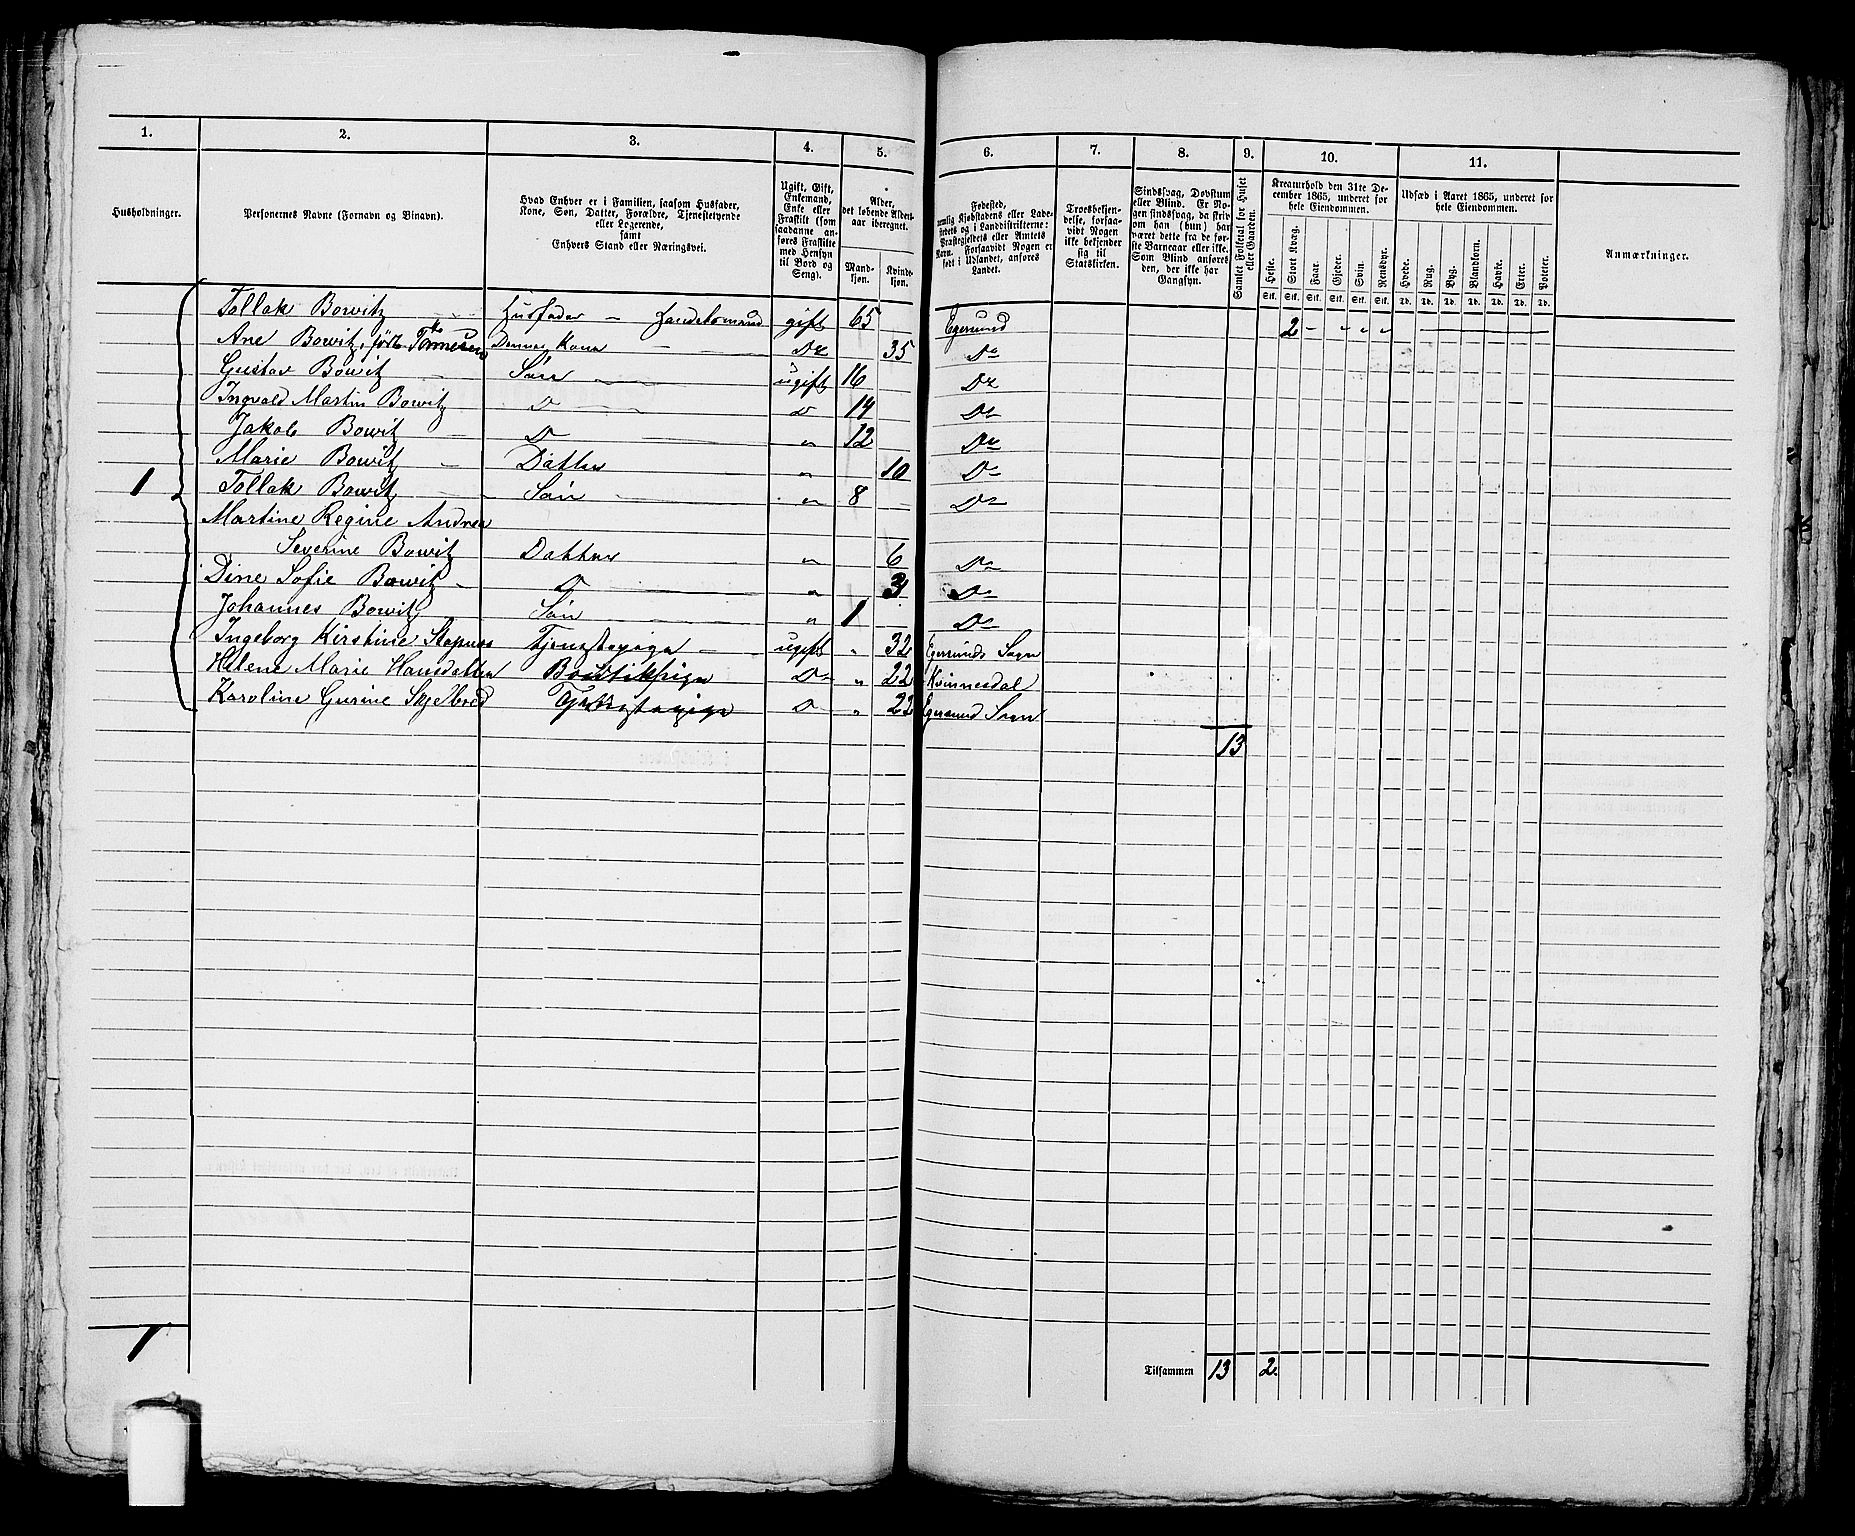 1. 2. 3. 4. 5. 6. 7. 8. 9. 10. 11.
Husholdninger.
Personernes Navne (Fornavn og Binavn).
Hvad Enhver er i Familien, saasom Husfader,
Kone, Søn, Datter, Forældre, Tjenestetyende
eller Logerende,
samt
Enhvers Stand eller Næringsvei.
Ugift, Gift,
Enkemand,
Enke eller
Fraskilt (som
saadanne an-
føres Fraskilte
med Hensyn
til Bord og
Seng).
Alder,
det løbende Alders-
aar iberegnet.
Mand-
kjøn.
Kvinde-
kjøn.
Fødested,
nemlig Kjøbstadens eller Lade-
stedets og i Landdistrikterne:
Præstegjeldets eller Amtets
Navn. Forsaavidt Nogen er
født i Udlandet, anføres
Landet.
Troesbekjen-
delse, forsaa-
vidt Nogen
ikke bekjender
sig til
Statskirken.
Sindssvag, Døvstum
eller Blind. Er No-
gen sindssvag, da skriv
om han (hun) har
været dette fra de før-
ste Barneaar eller ikke.
Som Blind anføres
den, der ikke har
Gangsyn.
Samlet Folketal for Huset
eller Gaarden.
Kreaturhold den 31te De-
cember 1865, underet for
hele Eiendommen.
Heste. Stort Kvæg. Faar. Gjeder. Svin. Rensdyr.
Stk. Stk. Stk. Stk. Stk. Stk.
Udsæd i Aaret 1865, underet for
hele Eiendommen.
Hvede. Rug. Byg. Blandkorn. Havre. Erter. Poteter.
Td. Td. Td. Td. Td. Td. Td.
Anmærkninger.
Tollak Bowitz Husfader - Handelsmand gift 65 Egersund 2 - - - -
Ane Bowitz, født Tønnesen Dennes Kone - Do 35 Do
Gustav Bowitz - Søn - ugift 16 Do
Ingvald Martin Bowitz D - D 14 Do
Jakob Bowitz - D - " 12 Do
Marie Bowitz - Datter - " 10 Do
1 Tollak Bowitz - Søn - " 8 Do
Martine Regine Andrea
Severine Bowitz Datter " 6 Do
Dine Sofie Bowitz - D " 3 Do
Johannes Bowitz Søn - " 1 Do
Ingeborg Kirstine Stapnes Tjenestepige - ugift " 32 Egersunds Sogn
Helene Marie Hansdatter Boutikpige Do " 22 Kvinnesdal
Karoline Gurine Skjelbred Tjenestepige D " 22 Egersund Sogn
13
1
Tilsammen 13 2